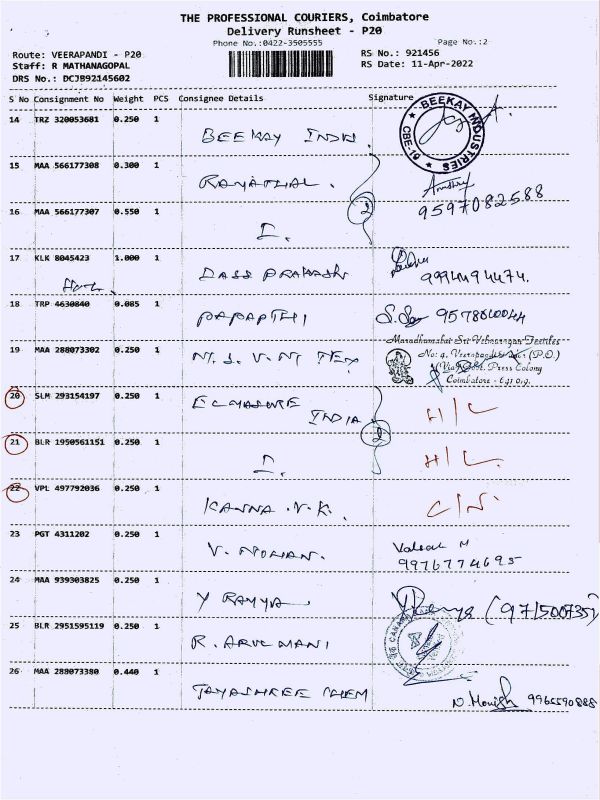 THE PROFESSIONAL COURIERS, Coimbatore
Delivery Runsheet - P20
Phone No.:0422-3505555
Page No.:2
Route: VEERAPANDI - P20
RS No.: 921456
Staff: R MATHANAGOPAL
RS Date: 11-Apr-2022
DRS No.: DCJB92145602
S No Consignment No Weight PCS Consignee Details Signature
14 TRZ 320053681 0.250 1
BEEKAY INDUSTRIES CBE-19
BEEKAY INDIA
15 MAA 566177308 0.300 1
RAYATHAL.
2
9597082588
16 MAA 566177307 0.550 1
17 KLK 8045423 1.000 1
DASS PRAKASH
9994494474.
18 TRP 4630840 0.085 1
PAPAPTHI
9578600044
19 MAA 288073302 0.250 1
Maradhamalai Sri Velmurugan Textiles
No: 4, Veerapandi (P.O.)
(Via) Press Colony
Coimbatore - 641 019.
20 SLM 293154197 0.250 1
INDIA
H/C
21 BLR 1950561151 0.250 1
2
H/C
22 VPL 497792036 0.250 1
KANNA .V.K.
C/N.
23 PGT 4311202 0.250 1
V. MOHAN.
9976774695
24 MAA 939303825 0.250 1
Y RAMYA
25 BLR 2951595119 0.250 1
R. ARUL MANI
26 MAA 288073380 0.440 1
JAYASHREE CHEM
N. Monish 9965590888